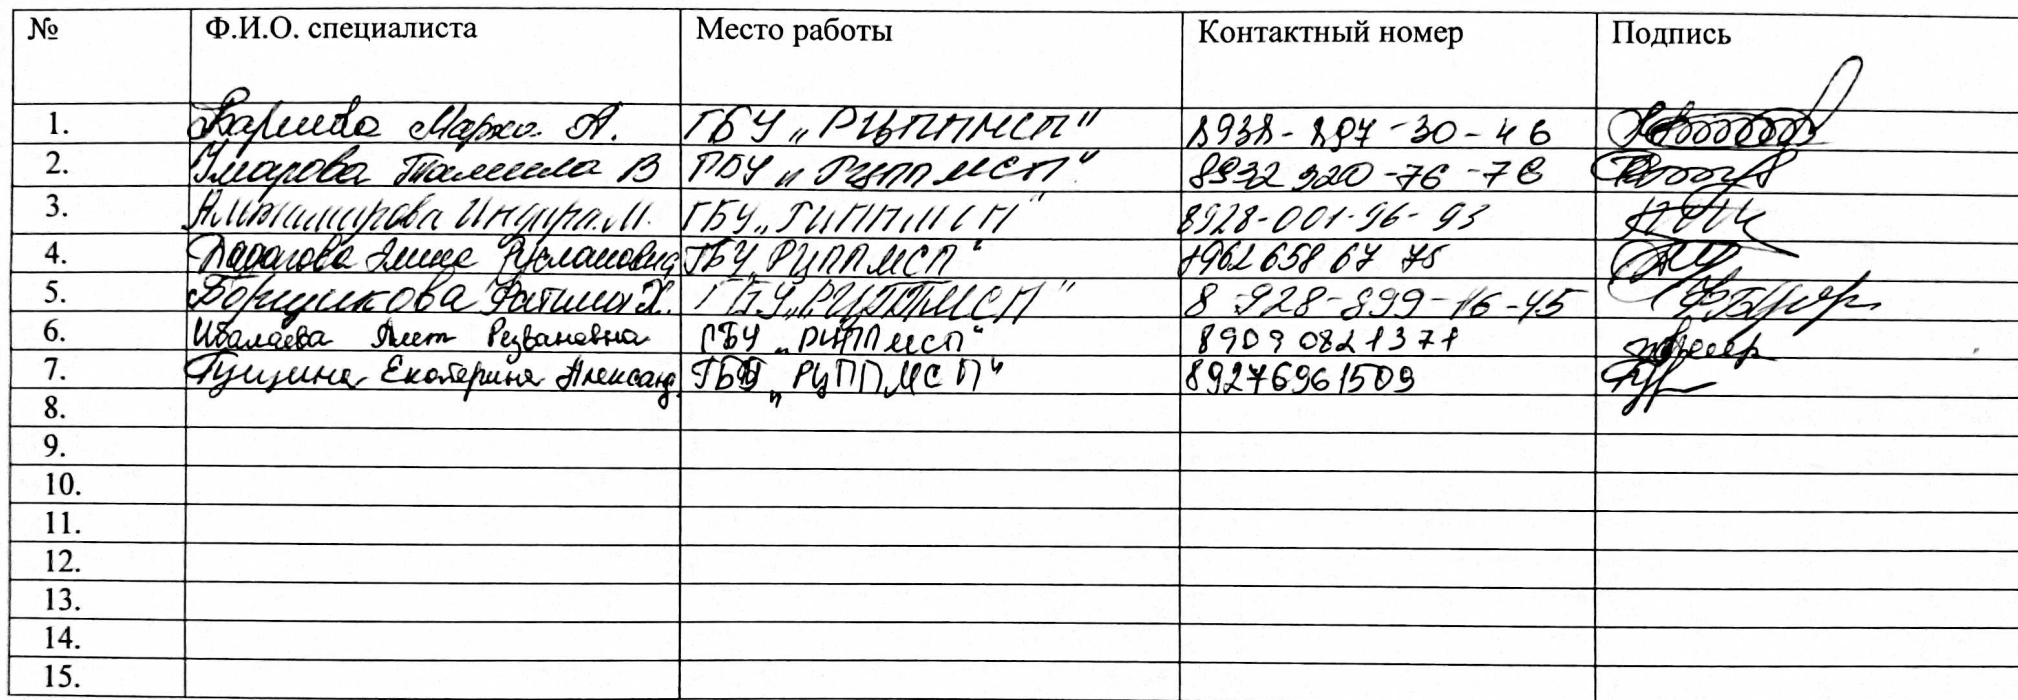 № Ф.И.О. специалиста Место работы Контактный номер Подпись
1. Марха А. ГБУ „РЦППМСП" 8938-897-30-46
2. Умарова Тамила В ГБУ „РЦППМСП" 8932 920-76-78
3. Индира М. ГБУ „РЦППМСП" 8928-001-96-93
4. Руслановна ГБУ „РЦППМСП" 8962 658 67 75
5. Борщикова Фатима Х. ГБУ „РЦППМСП" 8-928-899-16-45
6. Ибалаева Резвановна ГБУ „РЦППМСП" 89090821371
7. Гущина Екатерина Александ. ГБУ „РЦППМСП" 89276961509
8.
9.
10.
11.
12.
13.
14.
15.